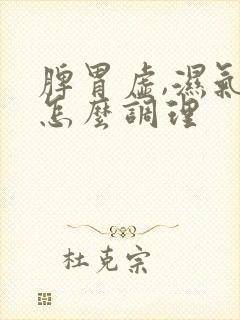 脾胃虛,濕氣
怎麼調理
杜克宗